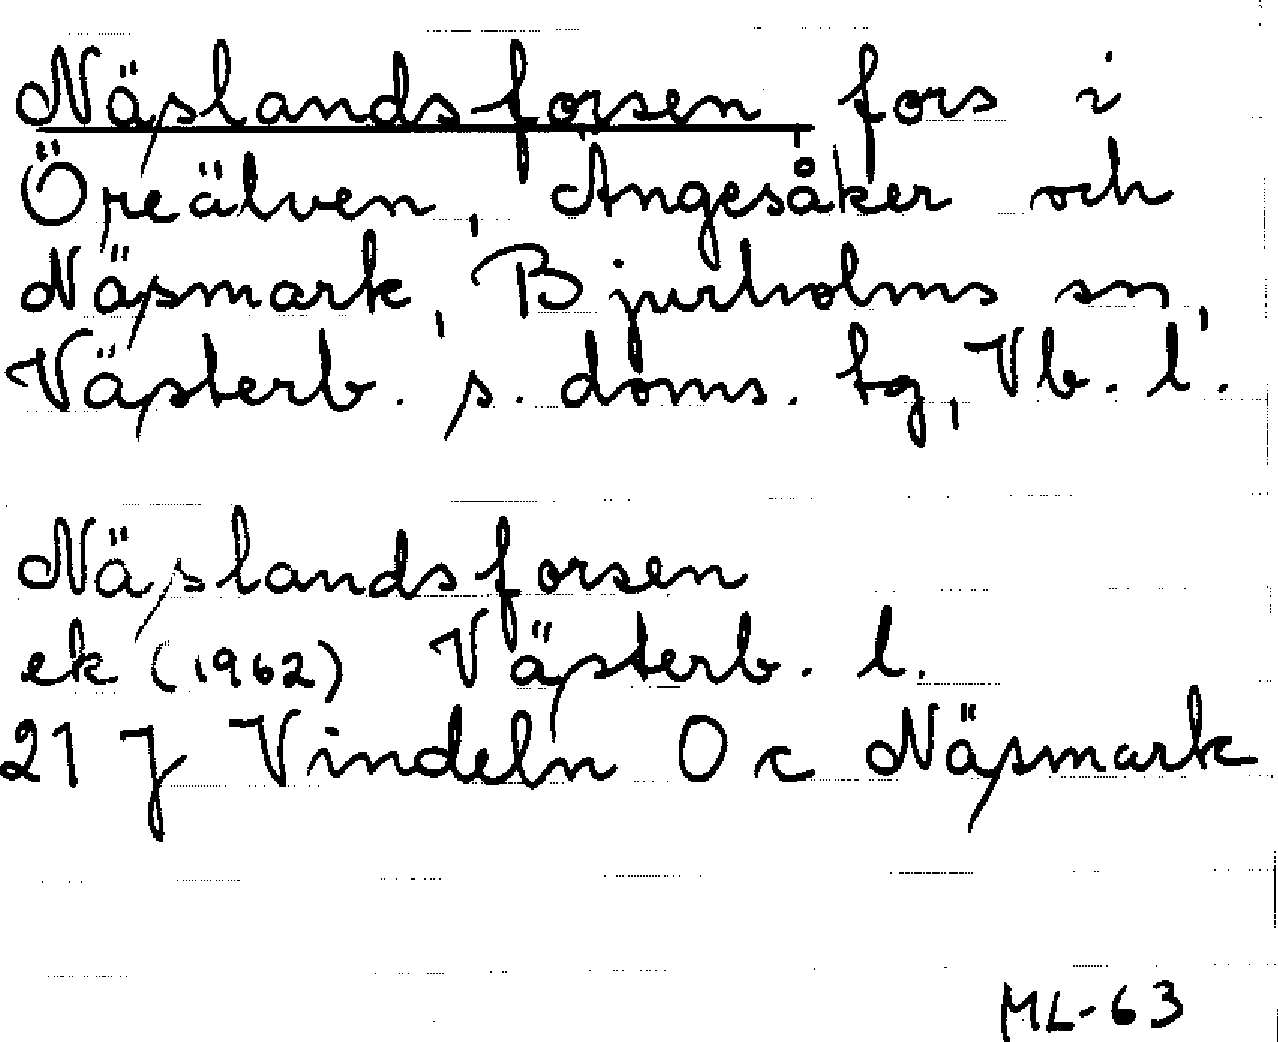 Näslandsforsen, fors i
Öreälven, Angesåker och
Näsmark, Bjurholms sn,
Västerb. s. doms. tg, Vb. l.
Näslandsforsen
ek (1962) Västerb. l.
21 J Vindeln O c Näsmark
ML-63